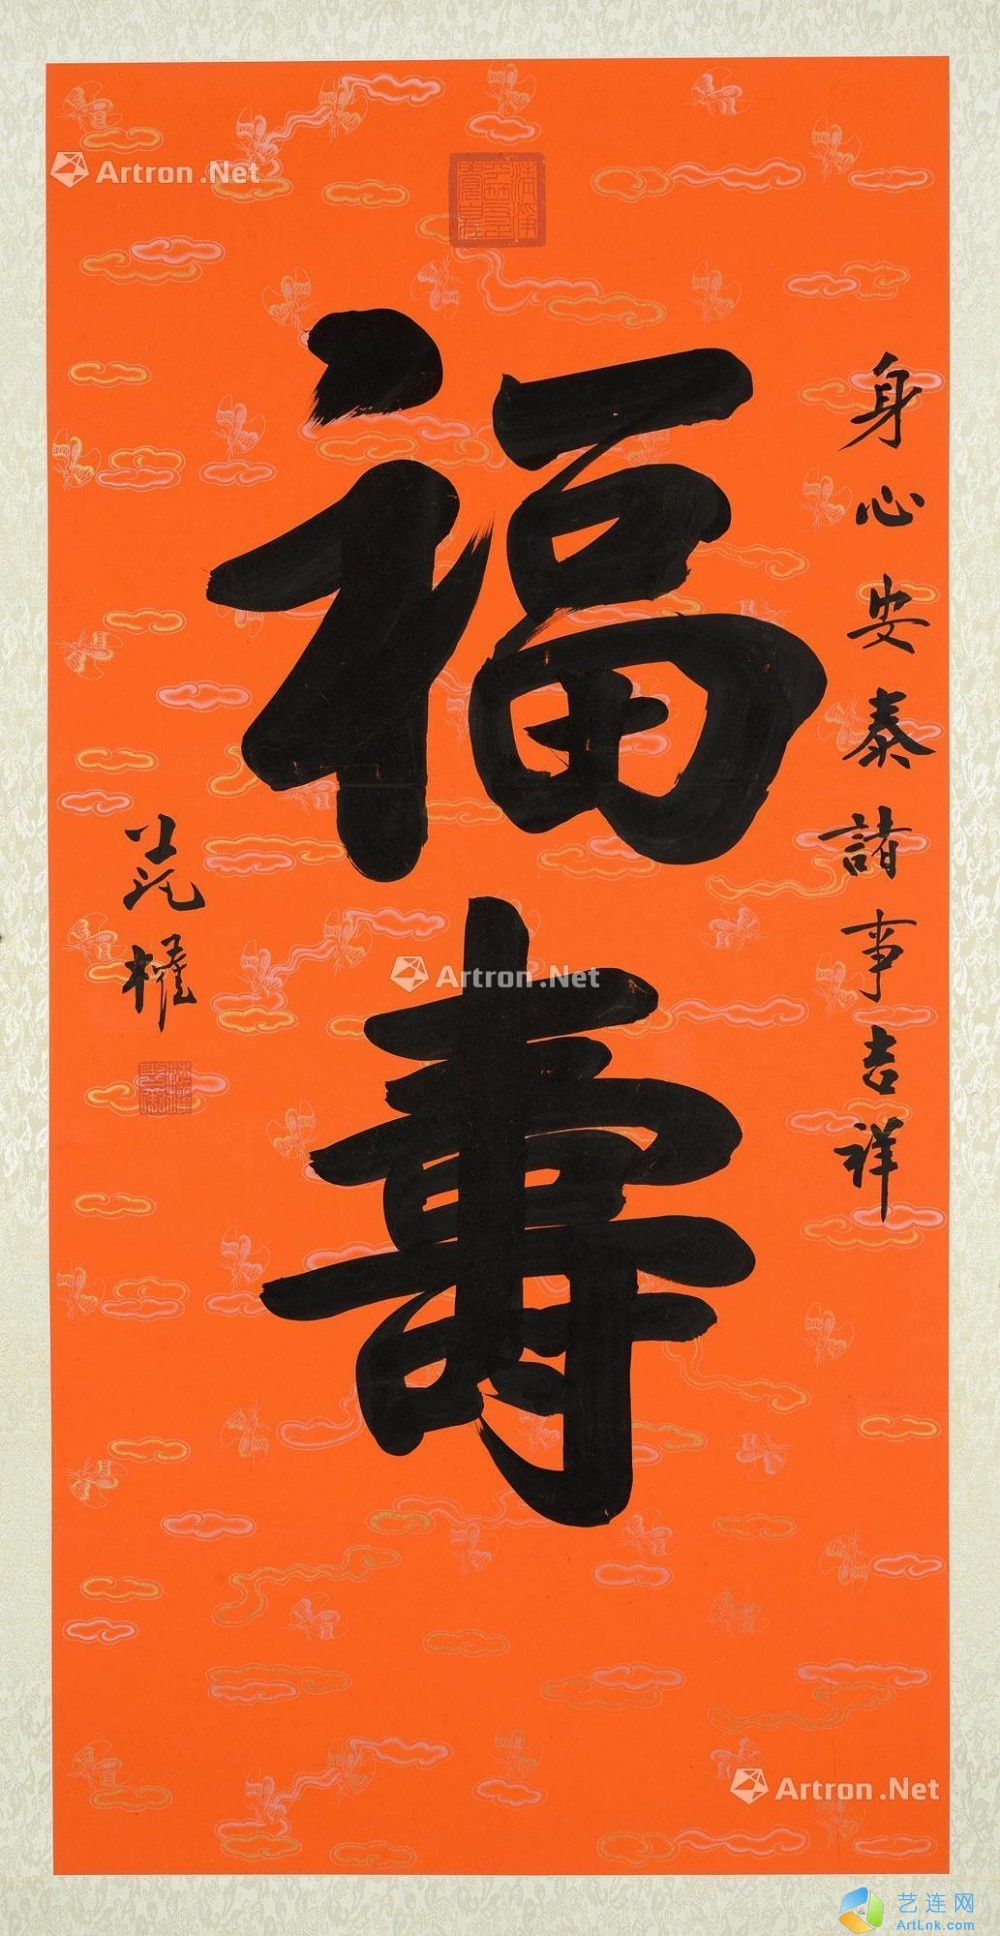 身心安泰諸事吉祥
福壽
Artron.Net
Artron.Net
Artron.Net
艺连网
ArtLnk.com